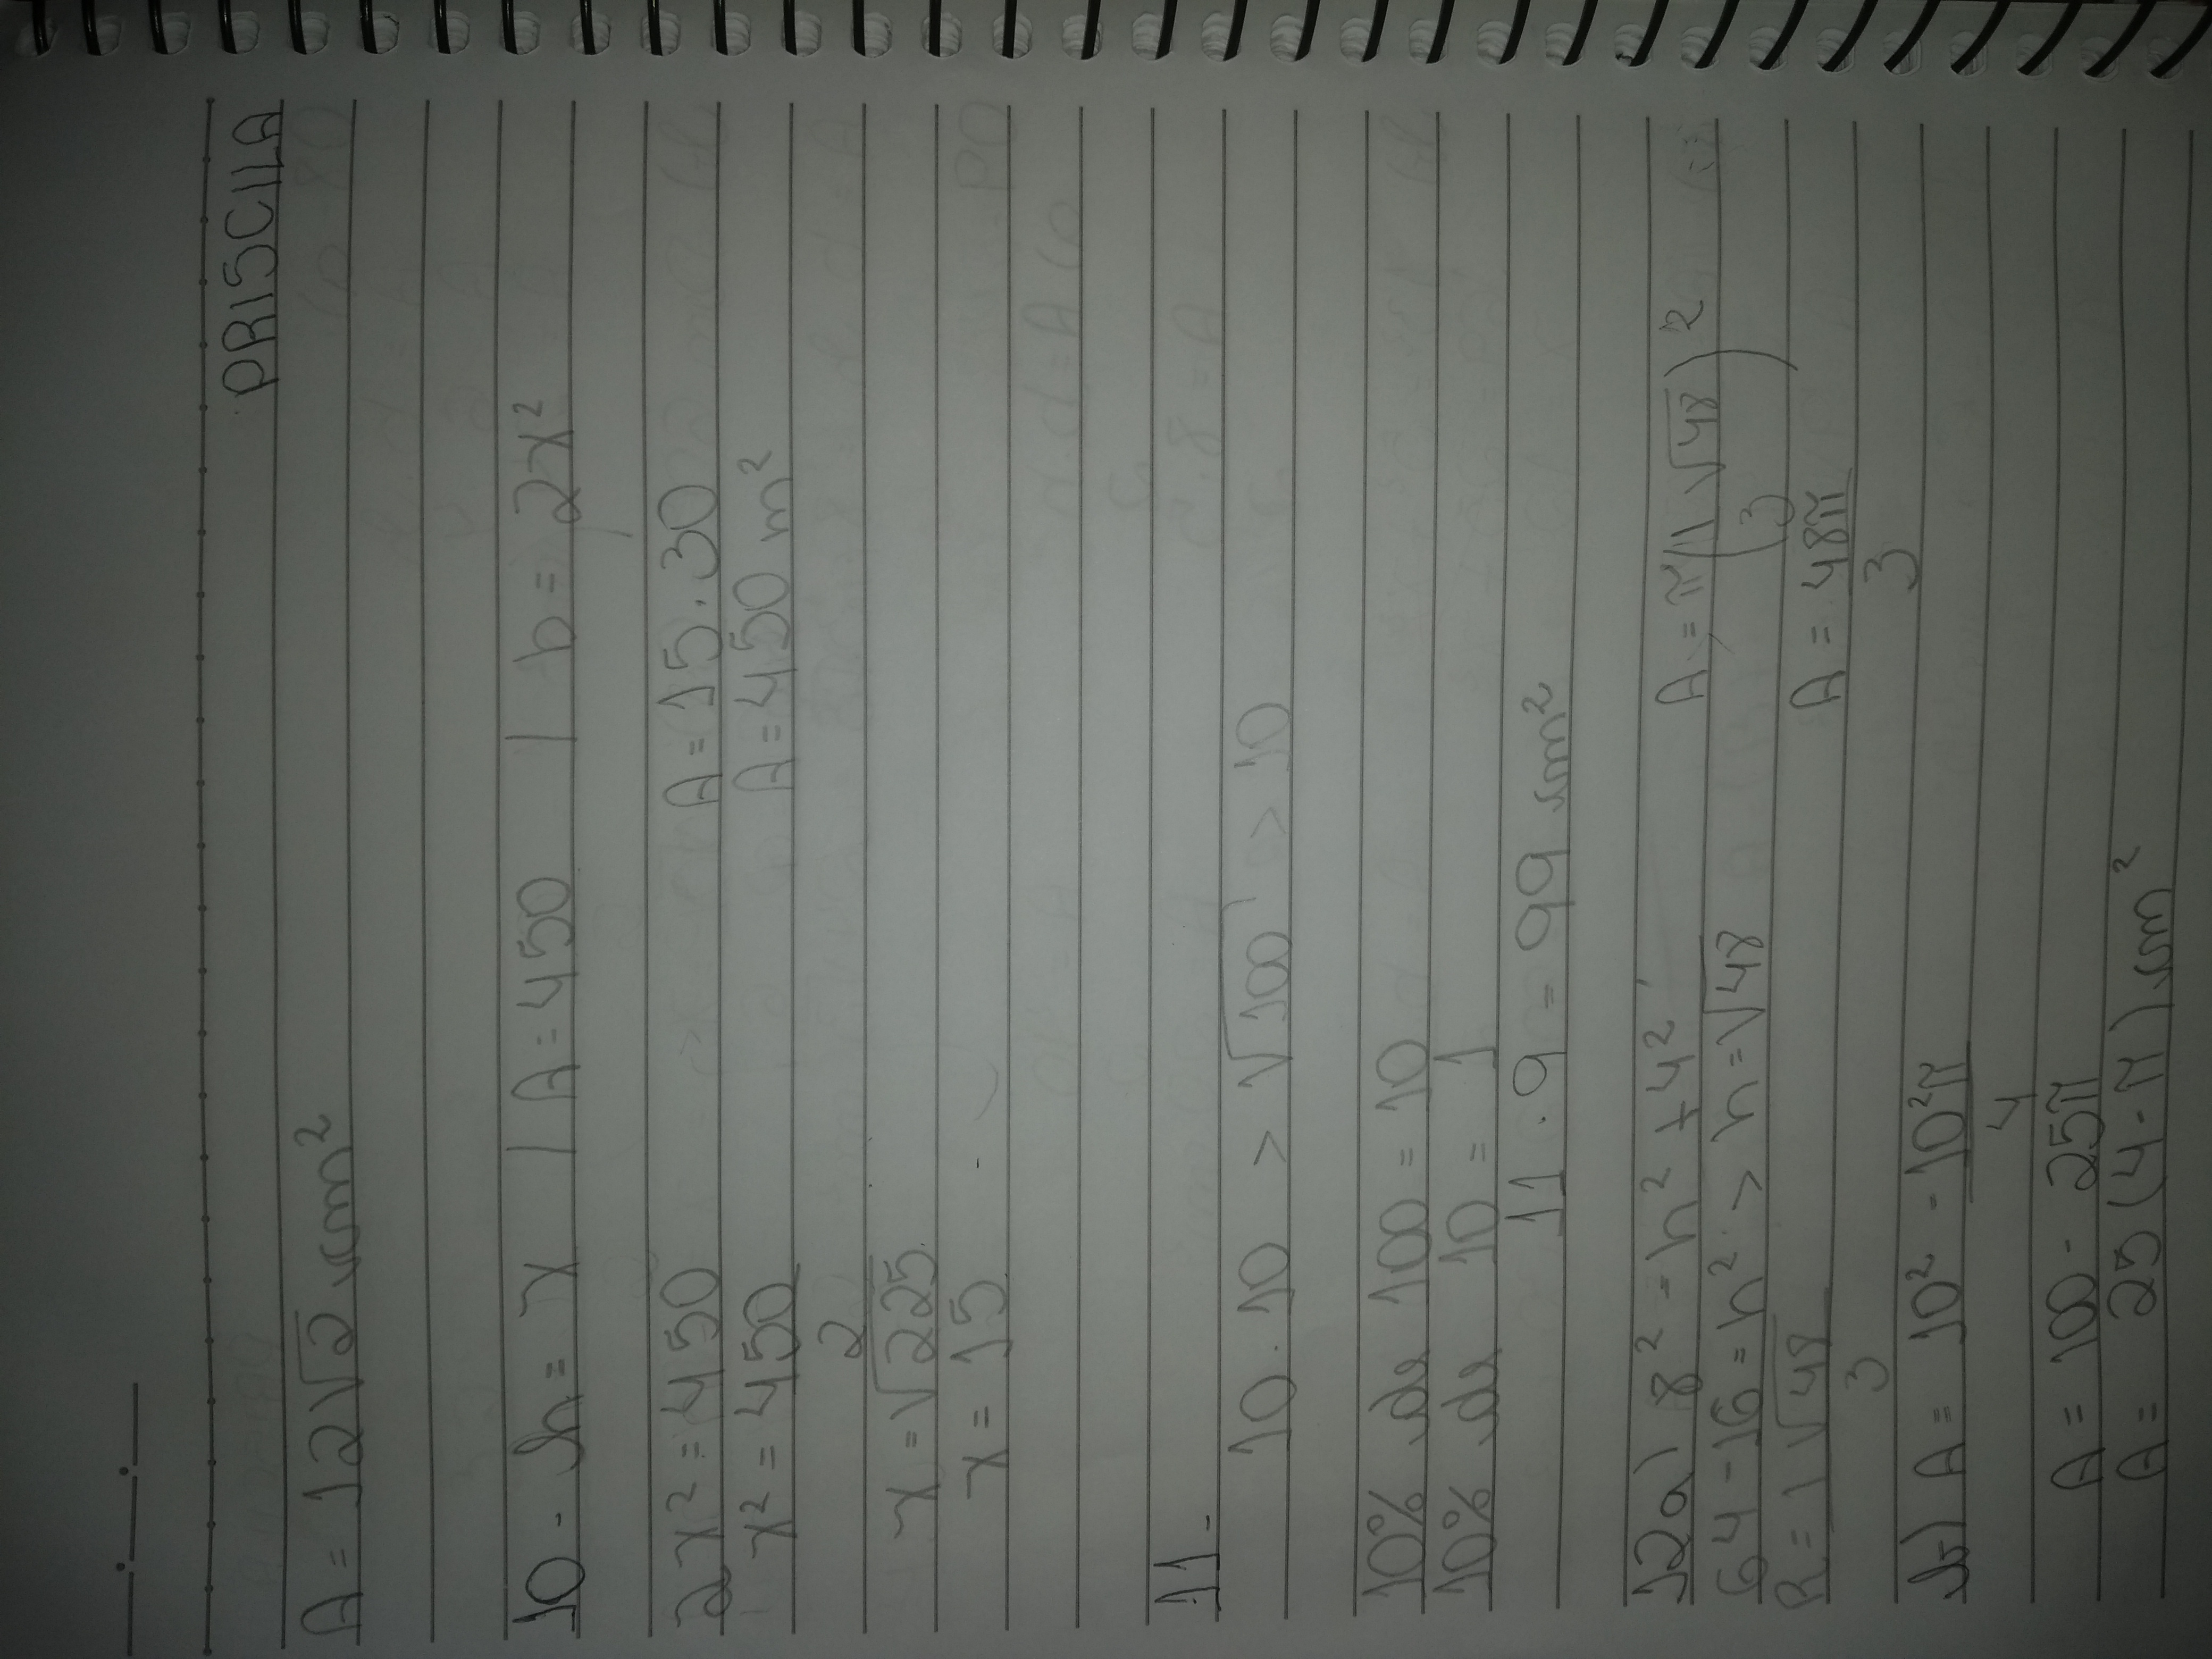 PRISCILA
A = 12√2 cm²
10 - h = x | A = 450 | b = 2x²
2x² = 450 A = 15 . 30
x² = 450 A = 450 m²
2
x = √225
x = 15
11 -
10 . 10 > √100 > 10
10% de 100 = 10
10% de 10 = 1
11 . 9 = 99 cm²
12a) 8² = h² + 4² A = π(1√48)²
64 - 16 = h² > h = √48 (3)
R = 1√48 A = 48π
3 3
b) A = 10² - 10²π
4
A = 100 - 25π
A = 25 (4 - π) cm²